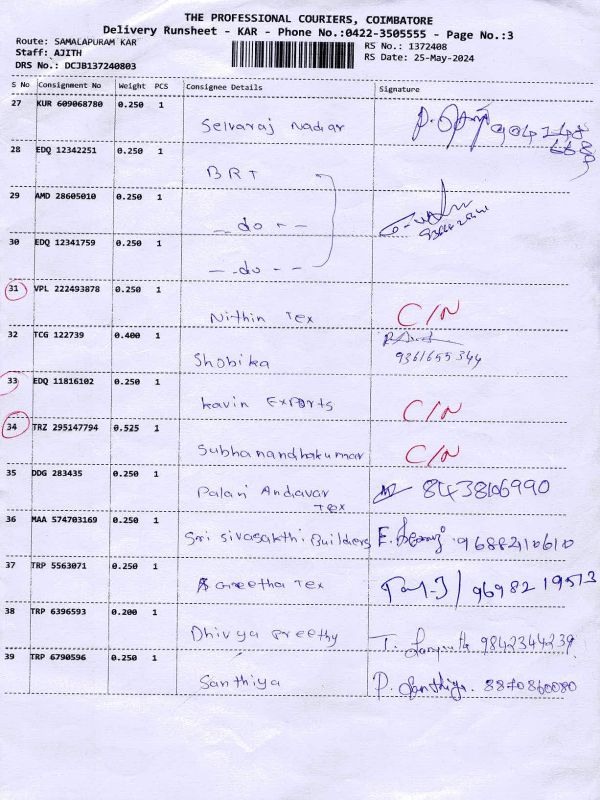 THE PROFESSIONAL COURIERS, COIMBATORE
Delivery Runsheet - KAR - Phone No.:0422-3505555 - Page No.:3
Route: SAMALAPURAM KAR
RS No.: 1372408
Staff: AJITH
RS Date: 25-May-2024
DRS No.: DCJB137240803
S No Consignment No Weight PCS Consignee Details Signature
27 KUR 609068780 0.250 1
Selvaraj Nadar
28 EDQ 12342251 0.250 1
BRT
29 AMD 28605010 0.250 1
- do - -
30 EDQ 12341759 0.250 1
- - do - -
31 VPL 222493878 0.250 1
Nithin Tex C/N
32 TCG 122739 0.400 1
Shobika 9361655344
33 EDQ 11816102 0.250 1
Kavin Exports C/N
34 TRZ 295147794 0.525 1
Subhanandhakumar C/N
35 DDG 283435 0.250 1
Palani Andavar
Tex
36 MAA 574703169 0.250 1
Sri Sivasakthi Builders 9688210610
37 TRP 5563071 0.250 1
Greetha Tex 9698219513
38 TRP 6396593 0.200 1
Dhivya Preethy T. 9842344239
39 TRP 6790596 0.250 1
Santhiya P. Santhiya 8870860080